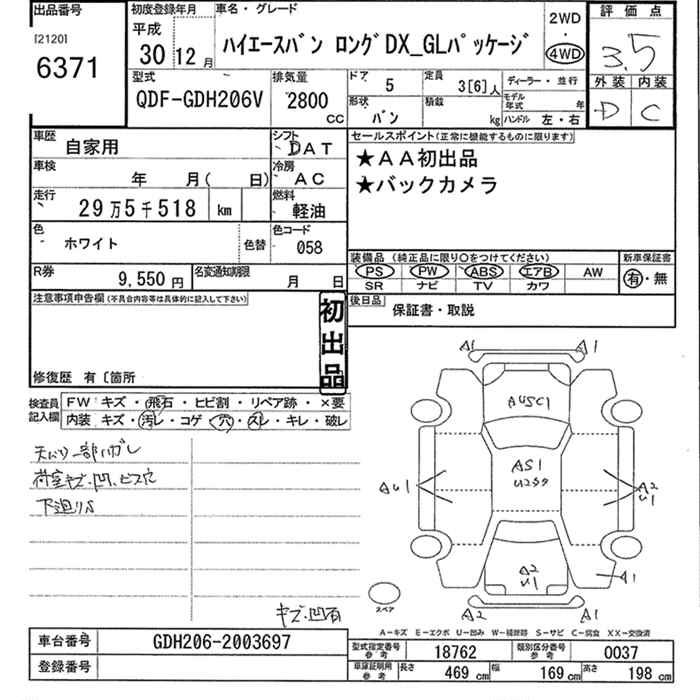 出品番号
[2120]
6371
初度登録年月
平成
30 12月
車名・グレード
ハイエースバン ロングDX_GLパッケージ
2WD
・
4WD
評価点
3.5
外装 内装
D C
型式
QDF-GDH206V
排気量
2800
CC
ドア
5
定員
3[6]人
形状
バン
積載
kg
ディーラー・並行
モデル年式 年
ハンドル 左・右
車歴
自家用
シフト
DAT
車検
年 月( 日)
冷房
AC
走行
29万5千518 km
燃料
軽油
色
ホワイト
色替
色コード
058
R券
9,550円
名変通知期限
月 日
セールスポイント(正常に機能するものに限ります)
★AA初出品
★バックカメラ
装備品(純正品に限り○をつけてください)
新車保証書
PS PW ABS エアB AW
SR ナビ TV カワ
有・無
後日品
保証書・取説
注意事項申告欄(不具合内容等は具体的に記入して下さい)
初出品
修復歴 有〔箇所
検査員
記入欄
FW キズ・飛石・ヒビ割・リペア跡・×要
内装 キズ・汚レ・コゲ・穴・スレ・キレ・破レ
天バリ一部ハガレ
荷室キズ・凹、ビス穴
下廻りS
キズ・凹有
A1 A1
AUSC1
AS1
U2
AU1
A2
U1
A2
U1
A1
A2 A1
スペア
A-キズ E-エクボ U-凹み W-補修跡 S-サビ C-腐食 XX-交換済
車台番号
GDH206-2003697
登録番号
型式指定番号
参考
18762
類別区分番号
参考
0037
車庫証明用
参考
長さ 469 cm 幅 169 cm 高さ 198 cm